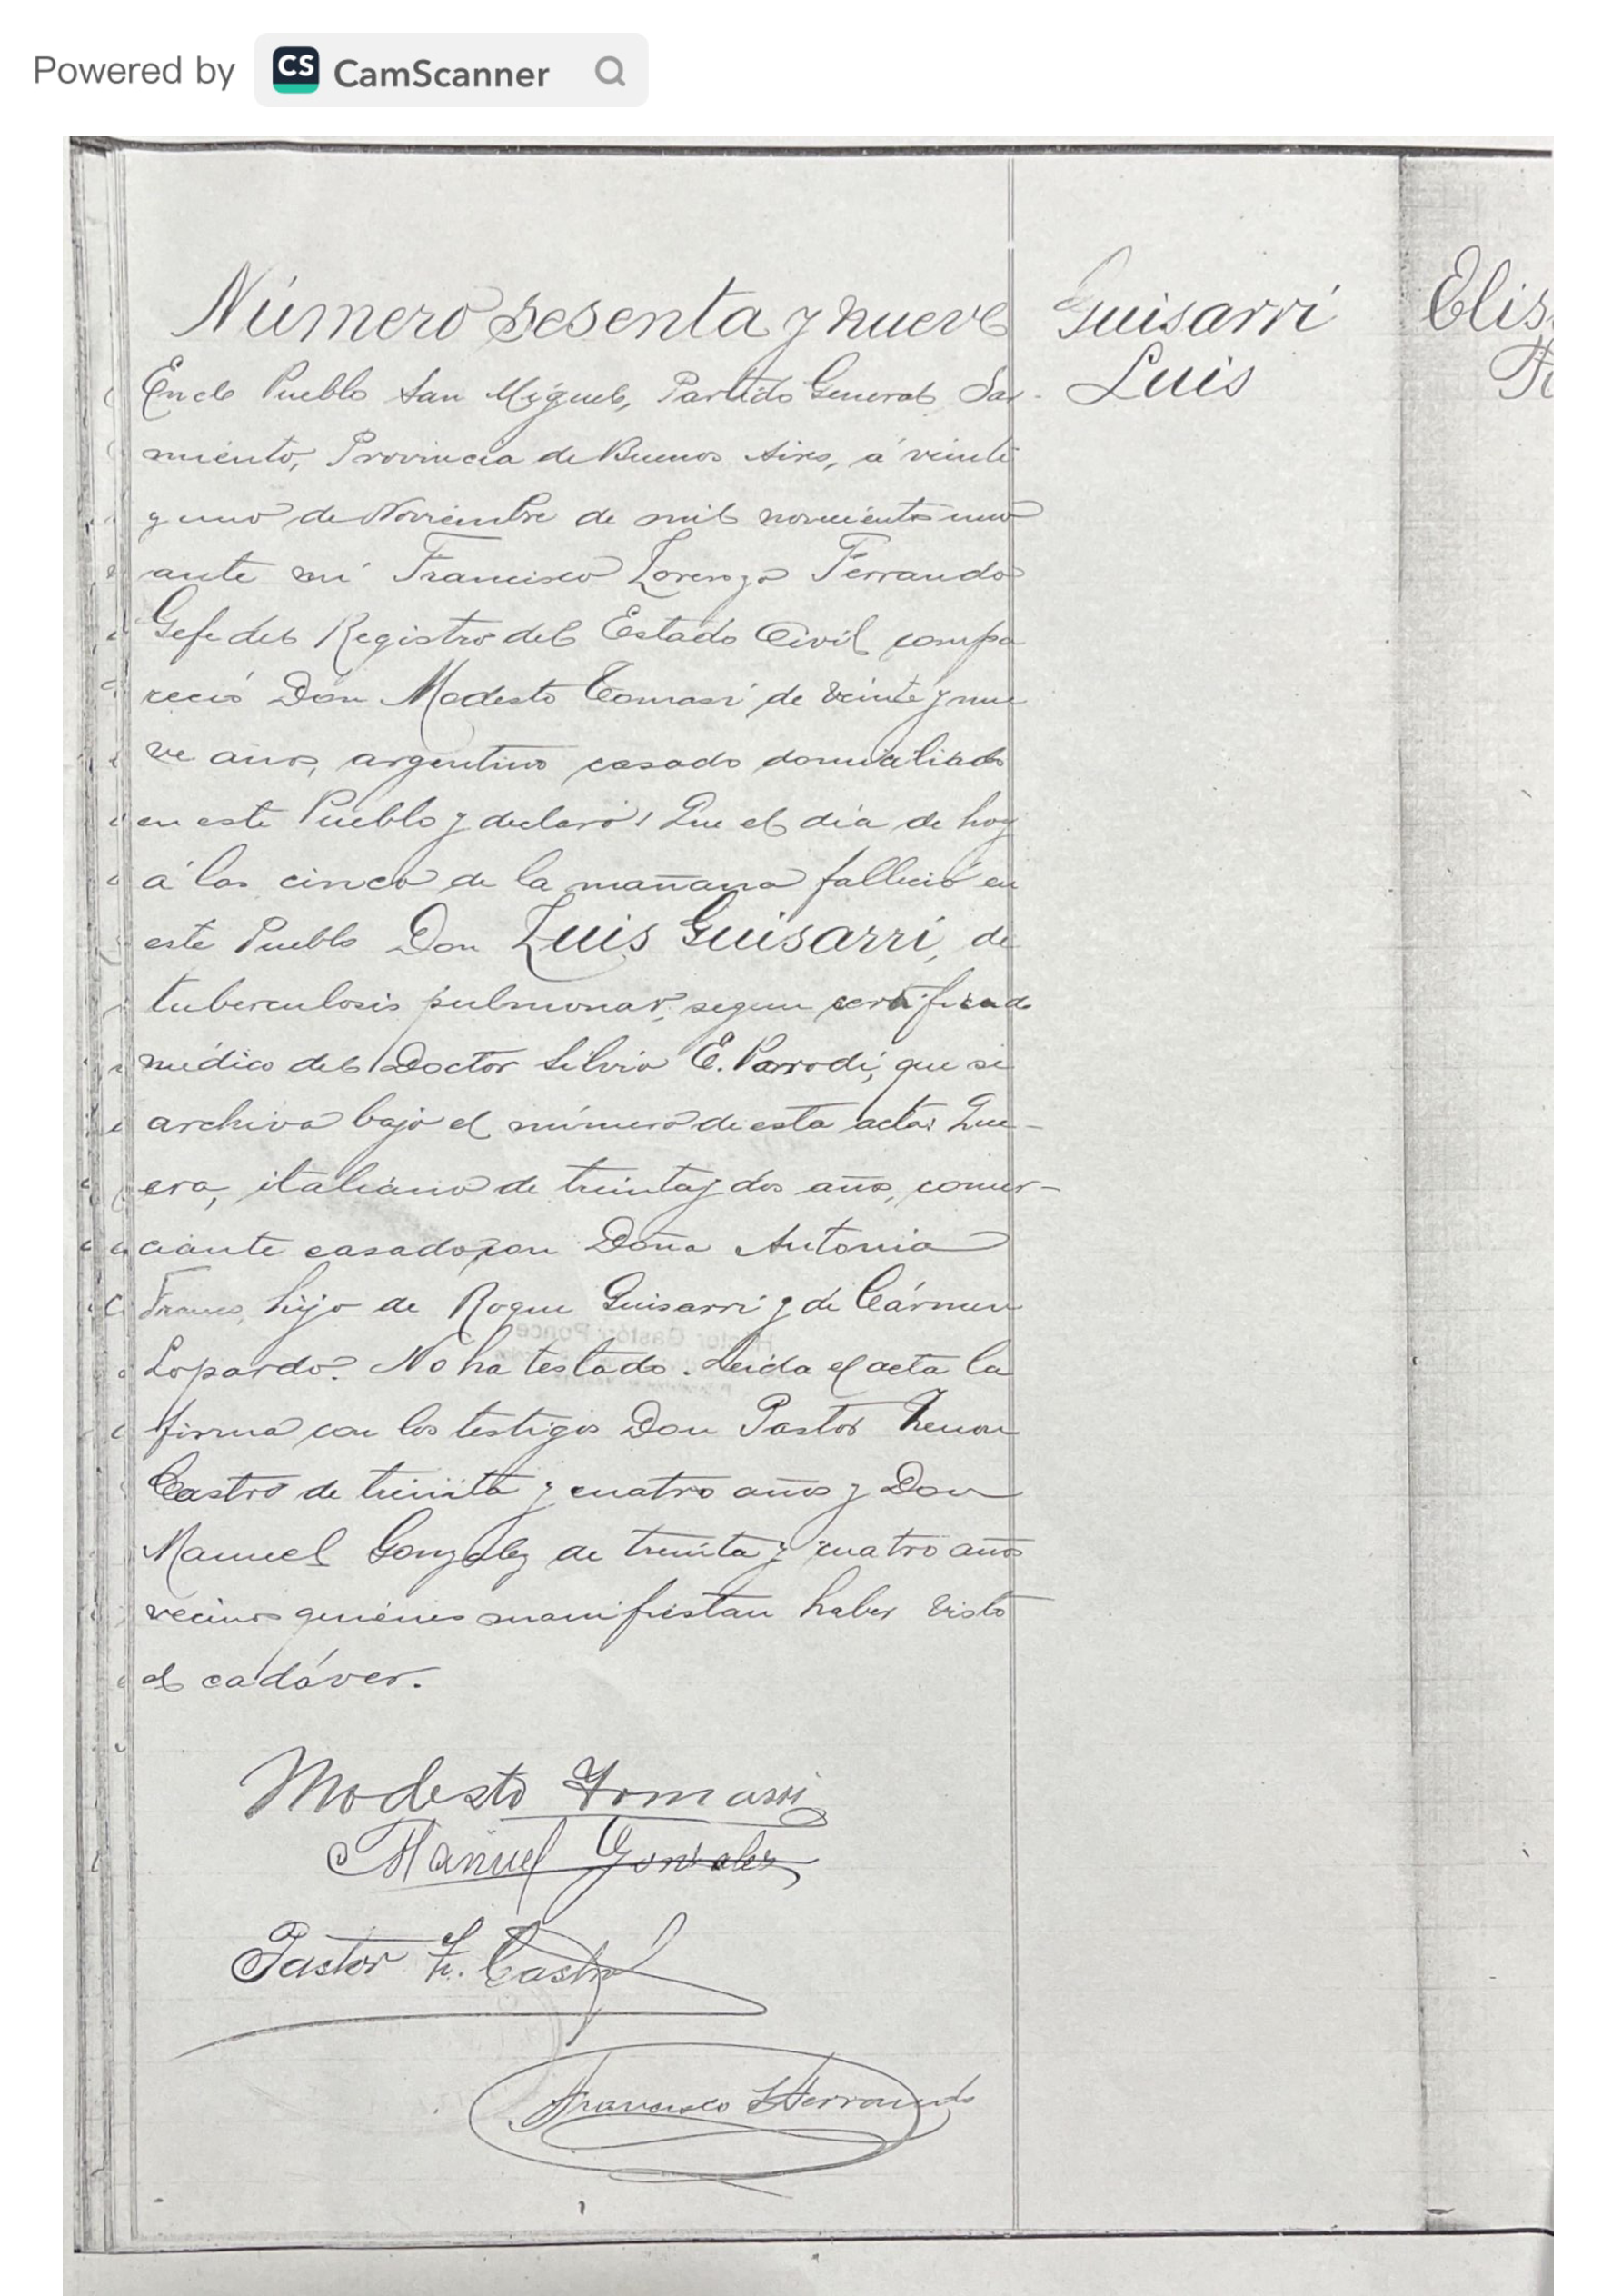 Powered by CS CamScanner
Número sesenta y nueve
Guisarri
Luis
En el Pueblo San Miguel, Partido General Sar-
miento, Provincia de Buenos Aires, á veinte
y uno de Noviembre de mil novecientos uno
ante mí Francisco Lorenzo Ferrando
Gefe del Registro del Estado Civil compa
reció Don Modesto Tomasi de veinte y nue
ve años, argentino casado domiciliado
en este Pueblo y declaró: Que el día de hoy
á las cinco de la mañana falleció en
este Pueblo Don Luis Guisarri, de
tuberculosis pulmonar, segun certificado
médico del Doctor Silvio E. Parrodi, que se
archiva bajo el número de esta acta: Que-
era, italiano de treinta y dos años, comer-
ciante casado con Doña Antonia
hijo de Roque Guisarri y de Cármen
Lopardo. No ha testado. Leida el acta la
firma con los testigos Don Pastor Zenon
Castro de treinta y cuatro años y Don
Manuel Gonzalez de treinta y cuatro años
vecinos quienes manifiestan haber visto
el cadáver.
Modesto Tomassi
Manuel Gonzalez
Pastor Z. Castro
Francisco L Ferrando
Elis